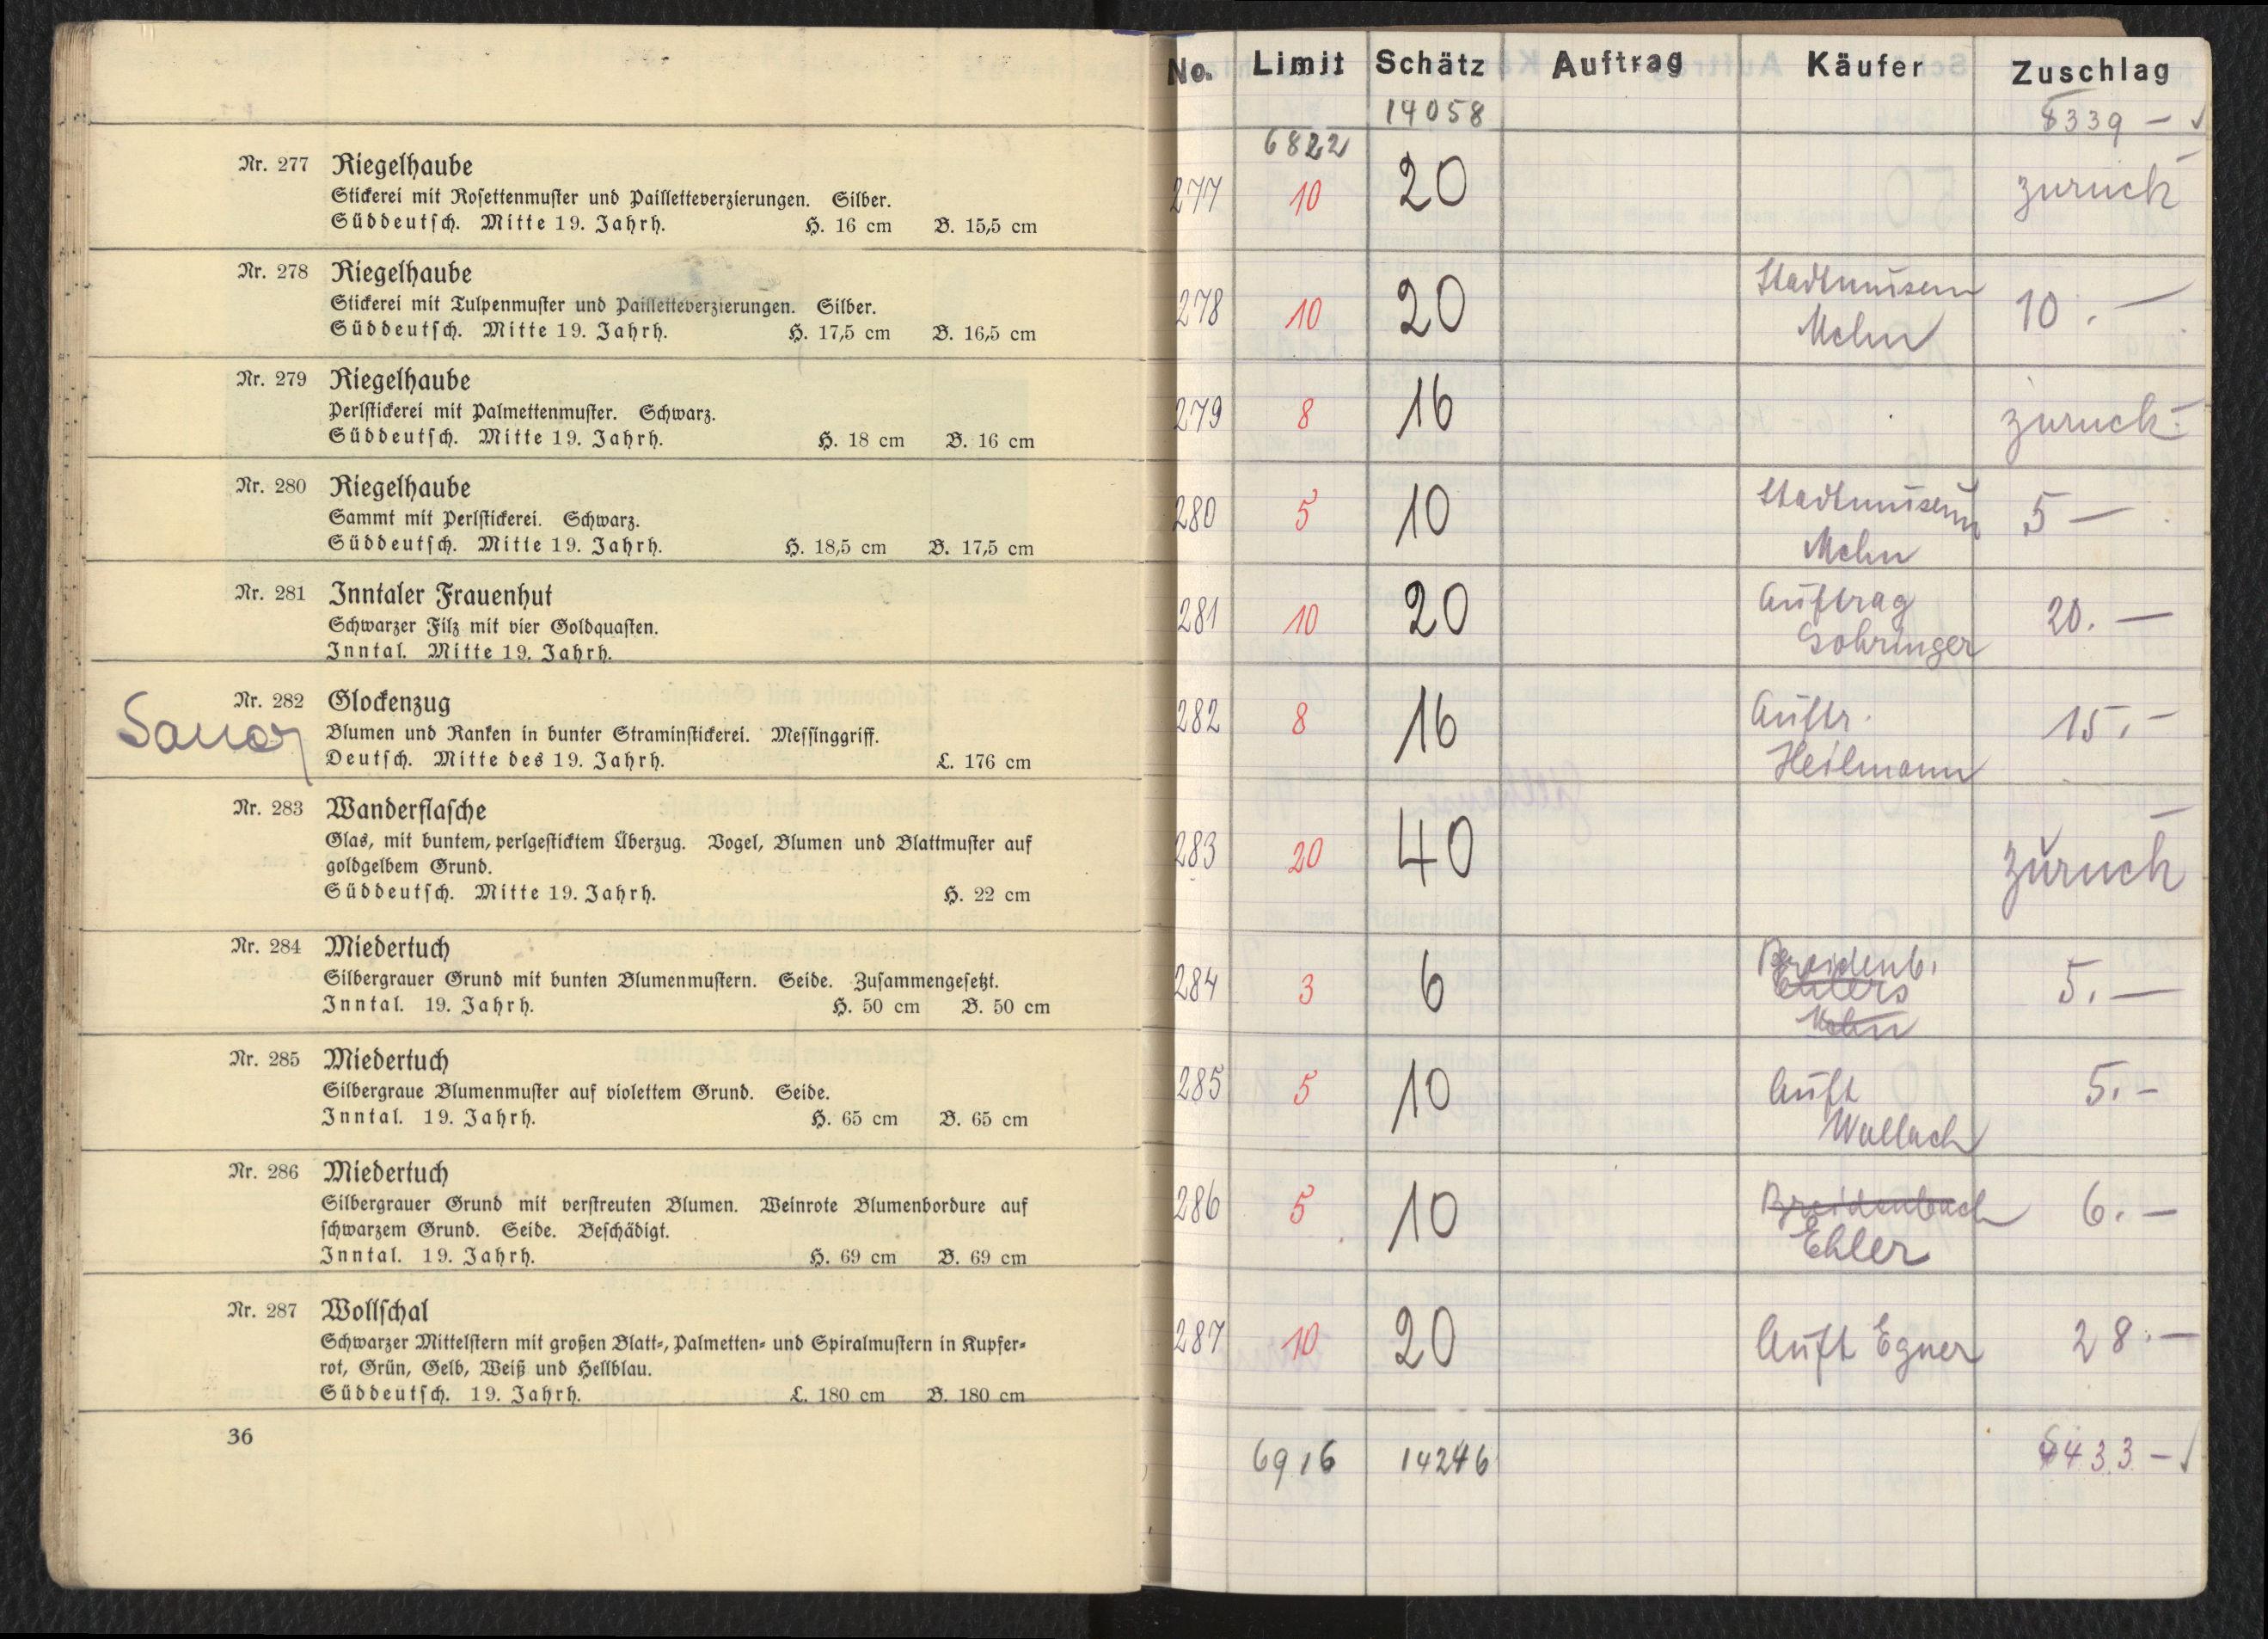 Nr. 277 Riegelhaube
Stickerei mit Rosettenmuster und Pailletteverzierungen. Silber.
Süddeutsch. Mitte 19. Jahrh. H. 16 cm B. 15,5 cm
Nr. 278 Riegelhaube
Stickerei mit Tulpenmuster und Pailletteverzierungen. Silber.
Süddeutsch. Mitte 19. Jahrh. H. 17,5 cm B. 16,5 cm
Nr. 279 Riegelhaube
Perlstickerei mit Palmettenmuster. Schwarz.
Süddeutsch. Mitte 19. Jahrh. H. 18 cm B. 16 cm
Nr. 280 Riegelhaube
Sammt mit Perlstickerei. Schwarz.
Süddeutsch. Mitte 19. Jahrh. H. 18,5 cm B. 17,5 cm
Nr. 281 Inntaler Frauenhut
Schwarzer Filz mit vier Goldquasten.
Inntal. Mitte 19. Jahrh.
Nr. 282 Glockenzug
Blumen und Ranken in bunter Straminstickerei. Messinggriff.
Deutsch. Mitte des 19. Jahrh. L. 176 cm
Nr. 283 Wanderflasche
Glas, mit buntem, perlgesticktem Überzug. Vogel, Blumen und Blattmuster auf
goldgelbem Grund.
Süddeutsch. Mitte 19. Jahrh. H. 22 cm
Nr. 284 Miedertuch
Silbergrauer Grund mit bunten Blumenmustern. Seide. Zusammengesetzt.
Inntal. 19. Jahrh. H. 50 cm B. 50 cm
Nr. 285 Miedertuch
Silbergraue Blumenmuster auf violettem Grund. Seide.
Inntal. 19. Jahrh. H. 65 cm B. 65 cm
Nr. 286 Miedertuch
Silbergrauer Grund mit verstreuten Blumen. Weinrote Blumenbordure auf
schwarzem Grund. Seide. Beschädigt.
Inntal. 19. Jahrh. H. 69 cm B. 69 cm
Nr. 287 Wollschal
Schwarzer Mittelstern mit großen Blatt-, Palmetten- und Spiralmustern in Kupfer-
rot, Grün, Gelb, Weiß und Hellblau.
Süddeutsch. 19. Jahrh. L. 180 cm B. 180 cm
36
No. Limit Schätz Auftrag Käufer Zuschlag
14058 8339 –
6822
277 10 20 zurück
278 10 20 Stadtmuseum 10.–
279 8 16 zurück
280 5 10 Stadtmuseum 5 –
281 10 20 Auftrag 20.–
Gohringer
282 8 16 Auftr. 15.–
Heilmann
283 20 40 zurück
284 3 6 Breidenb. 5.–
Ehlers
285 5 10 Auft 5.–
Wallach
286 5 10 Breidenbach 6.–
Ehler
287 10 20 Auft Egner 28.–
6916 14246 8433 –